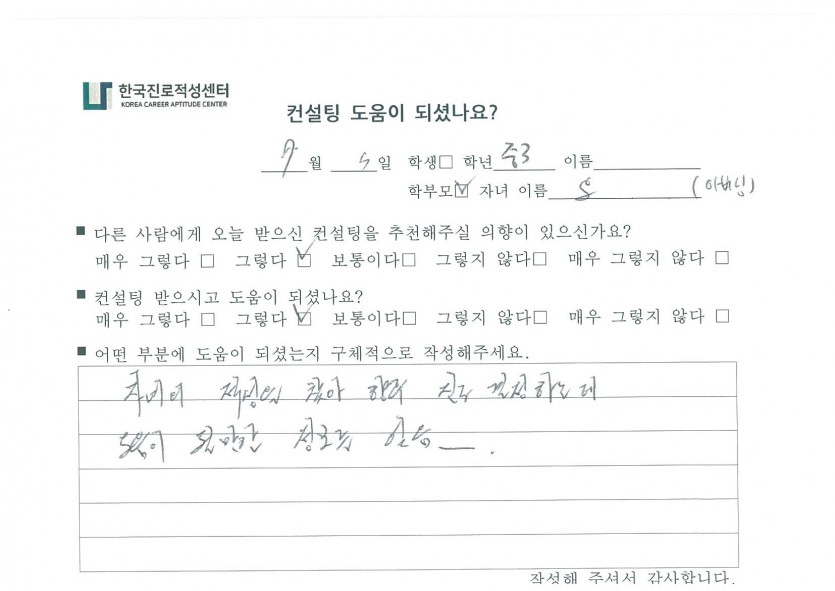 한국진로적성센터
KOREA CAREER APTITUDE CENTER
컨설팅 도움이 되셨나요?
월 5일 학생□ 학년 중3 이름
학부모☑ 자녀 이름 (아버님)
■ 다른 사람에게 오늘 받으신 컨설팅을 추천해주실 의향이 있으신가요?
매우 그렇다 □ 그렇다 ☑ 보통이다□ 그렇지 않다□ 매우 그렇지 않다 □
■ 컨설팅 받으시고 도움이 되셨나요?
매우 그렇다 □ 그렇다 ☑ 보통이다□ 그렇지 않다□ 매우 그렇지 않다 □
■ 어떤 부분에 도움이 되셨는지 구체적으로 작성해주세요.
적성을 찾아 진로 결정하는데
도움이 될만한 정보를 얻음.
작성해 주셔서 감사합니다.